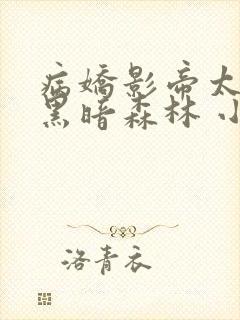 病嬌影帝太
黑暗森林 小
洛青衣